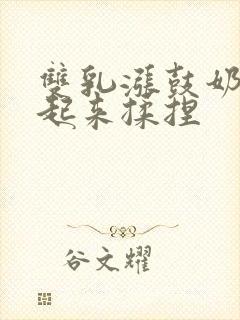 雙乳漲鼓奶
起来揉捏
谷文耀